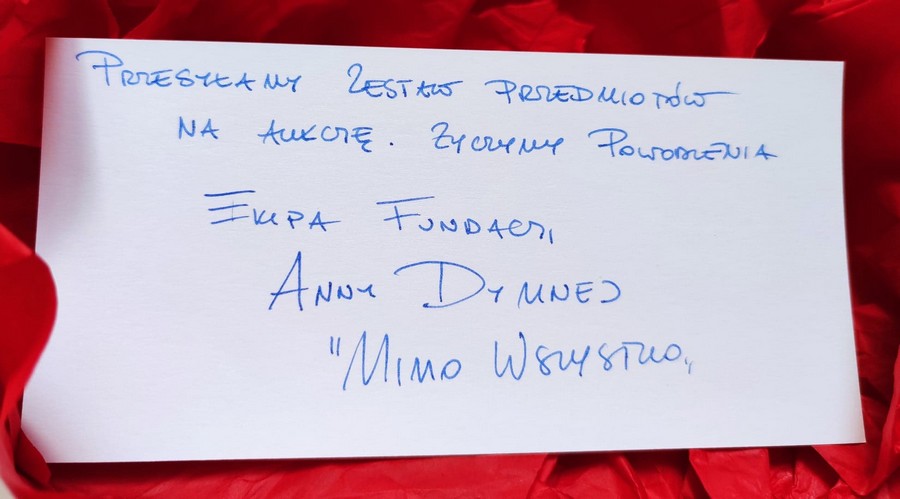 PRZESYŁAMY ZESTAW PRZEDMIOTÓW
NA AUKCJĘ. ŻYCZYMY POWODZENIA
EKIPA FUNDACJI
ANNY DYMNEJ
"MIMO WSZYSTKO„